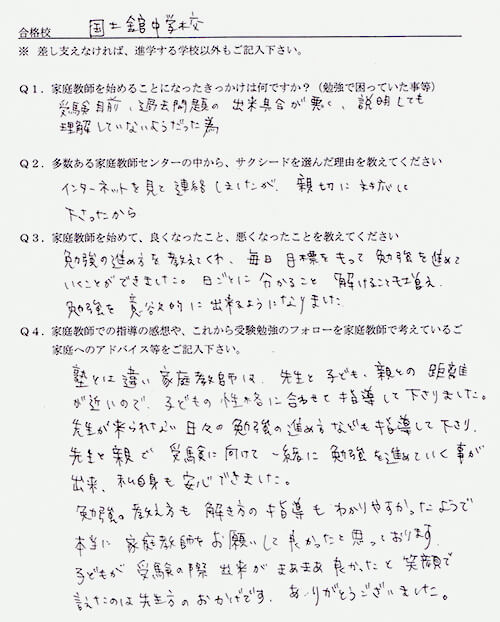 合格校 国士舘中学校
※ 差し支えなければ、進学する学校以外もご記入下さい。
Q1．家庭教師を始めることになったきっかけは何ですか？（勉強で困っていた事等）
受験目前、過去問題の出来具合が悪く、説明しても
理解していないようだった為
Q2．多数ある家庭教師センターの中から、サクシードを選んだ理由を教えてください
インターネットを見て連絡しましたが、親切に対応して
下さったから
Q3．家庭教師を始めて、良くなったこと、悪くなったことを教えてください
勉強の進め方を教えてくれ、毎日目標をもって勉強を進めて
いくことができました。日ごとに分かること 解けることも増え、
勉強を意欲的に出来るようになりました。
Q4．家庭教師での指導の感想や、これから受験勉強のフォローを家庭教師で考えているご
家庭へのアドバイス等をご記入下さい。
塾とは違い家庭教師は、先生と子ども、親との距離
が近いので、子どもの性格に合わせて指導して下さりました。
先生が来られない日々の勉強の進め方なども指導して下り、
先生と親で受験に向けて一緒に勉強を進めていく事が
出来、私自身も安心できました。
勉強の教え方も解き方の指導もわかりやすかったようで
本当に家庭教師をお願いして良かったと思っております。
子どもが受験の際 出来がまあまあ良かったと笑顔で
言えたのは先生方のおかげです。ありがとうございました。